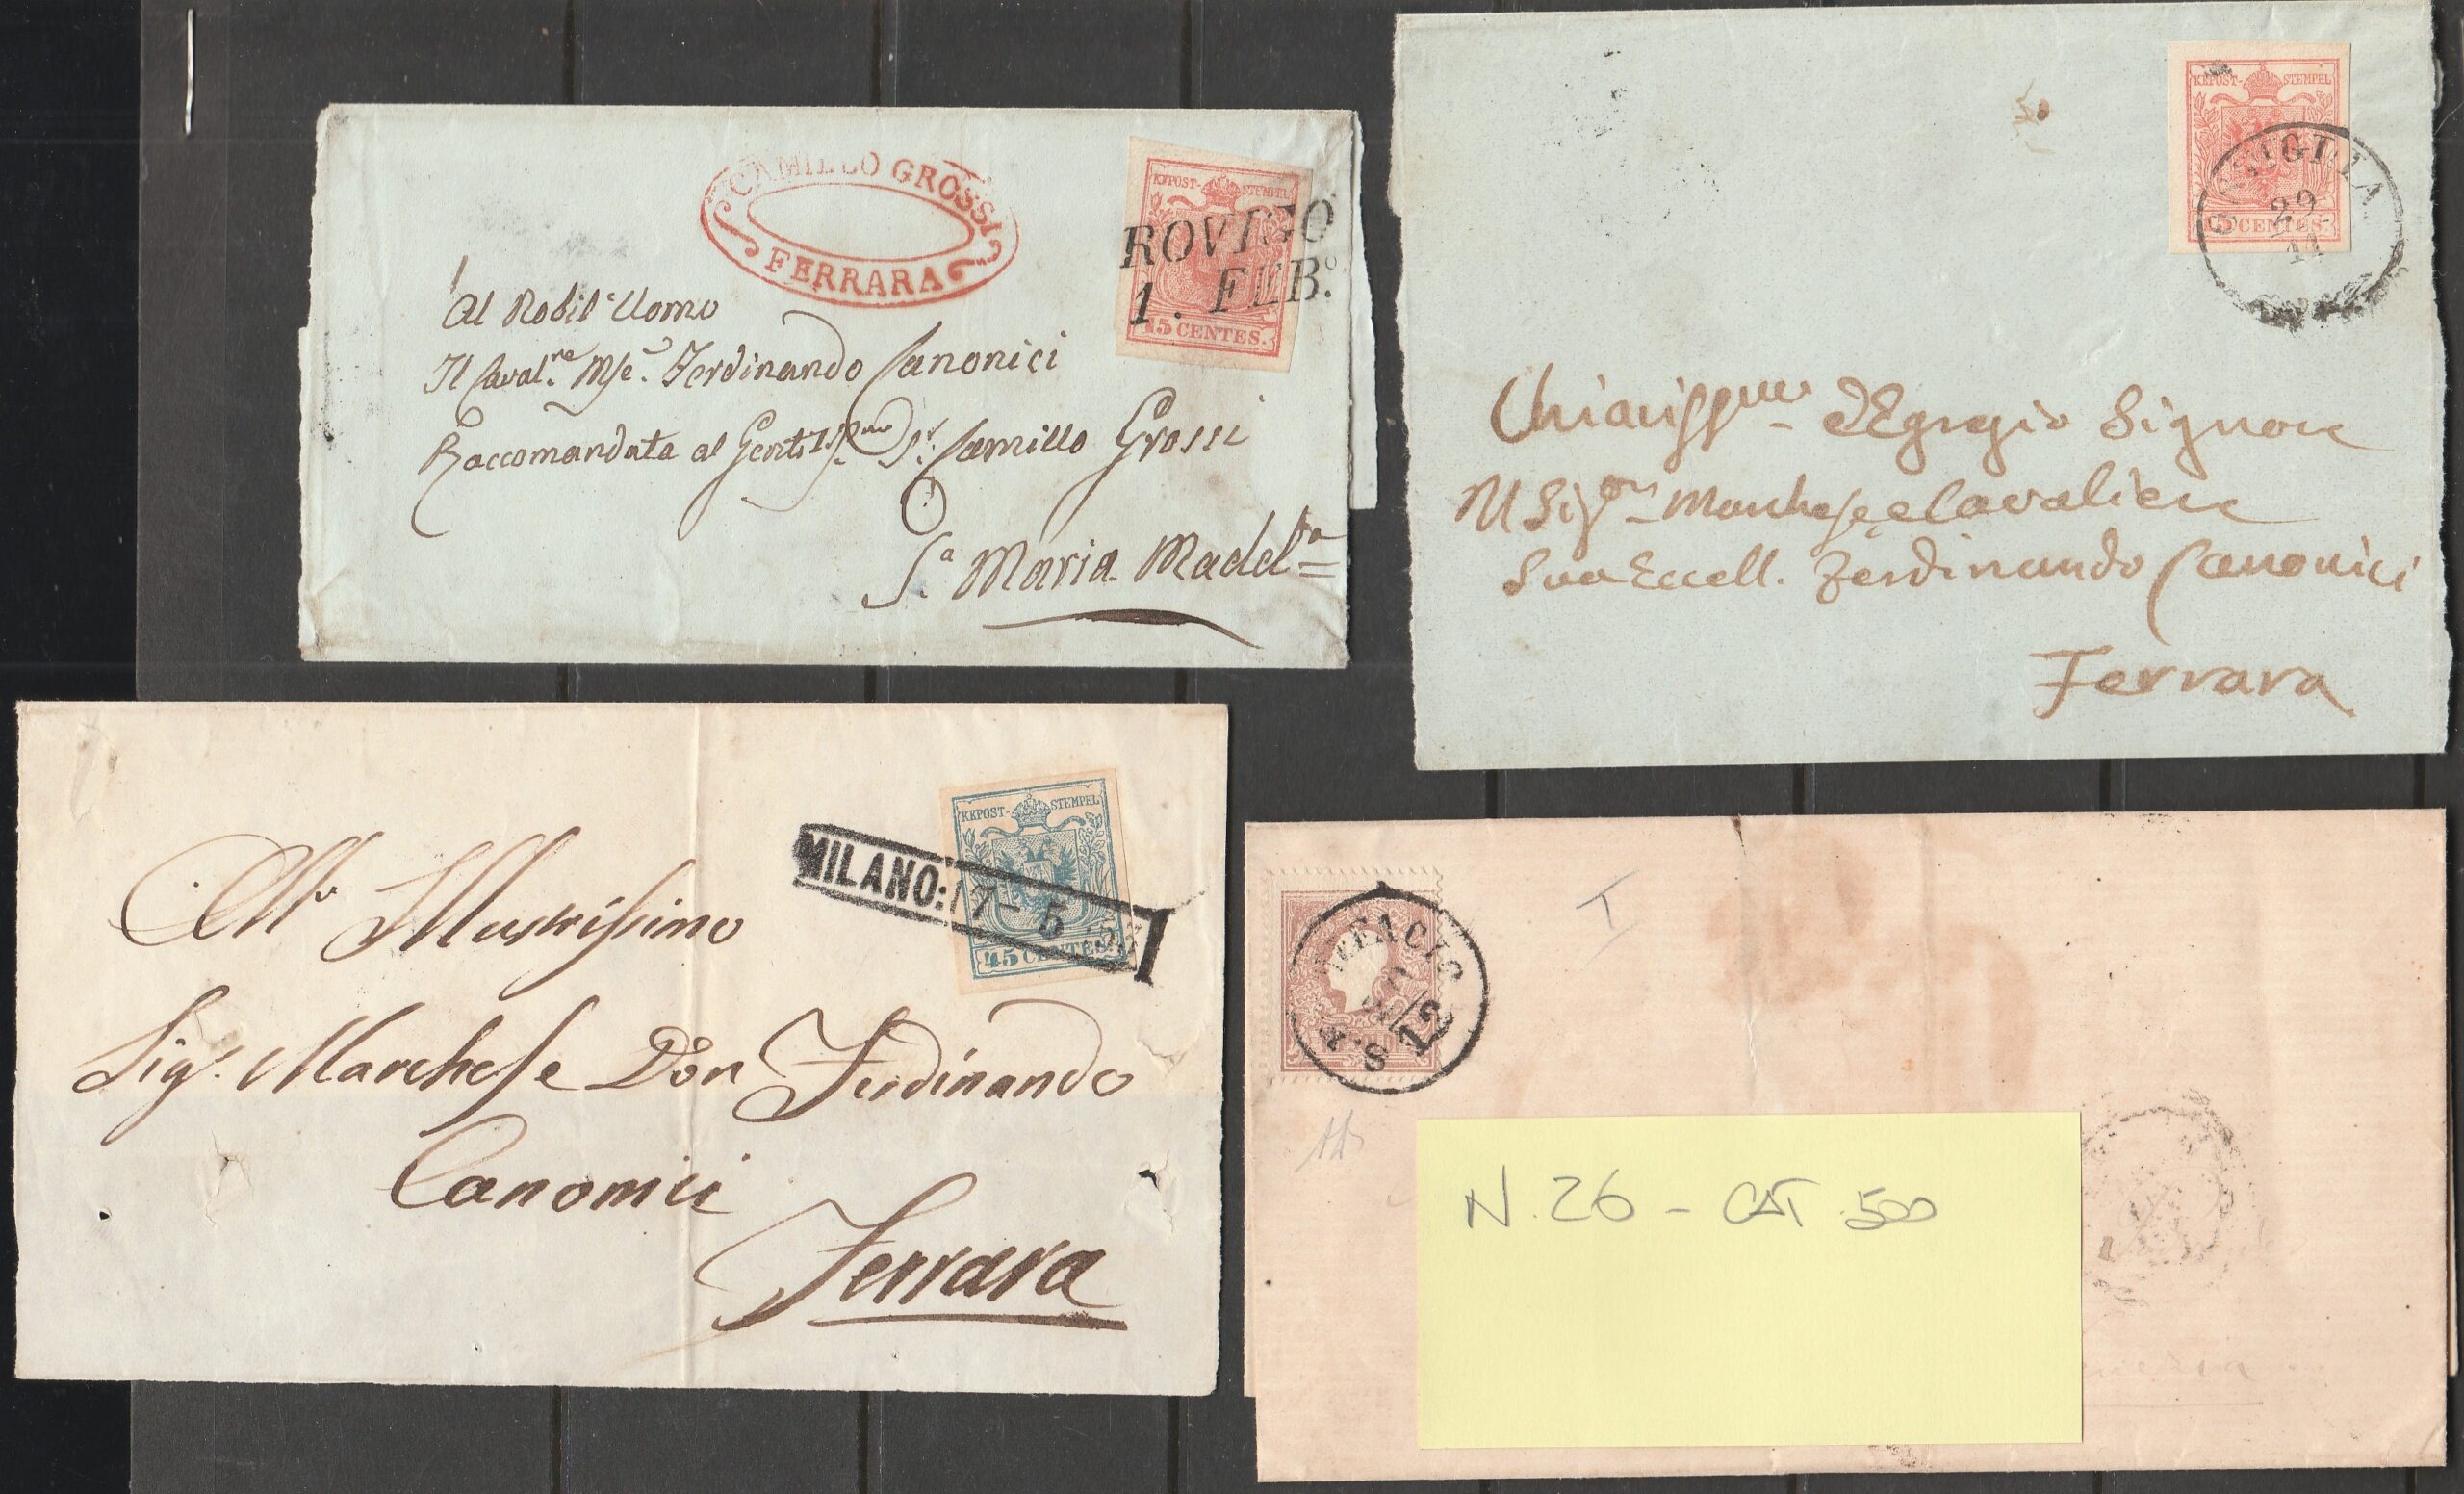 CAMILLO GROSSI
FERRARA
KKPOST-STEMPEL
ROVIGO
1. FEB.º
15 CENTES.
Al Nobil Uomo
Il Caval.re Mse. Ferdinando Canonici
Raccomandata al Gentilssmo Sr. Camillo Grossi
Sa. Maria Maddna
KKPOST-STEMPEL
29
11
15 CENTES.
Chiarissmo - ed Egregio Signore
Il Sigor Marchese e Cavaliere
Sua Eccell. Ferdinando Canonici
Ferrara
KKPOST-STEMPEL
MILANO: 17-5
45 CENTES.
All' Illustrissimo
Sigr. Marchese Don Ferdinando
Canonici
Ferrara
8 12
N. 26 - CAT. 500